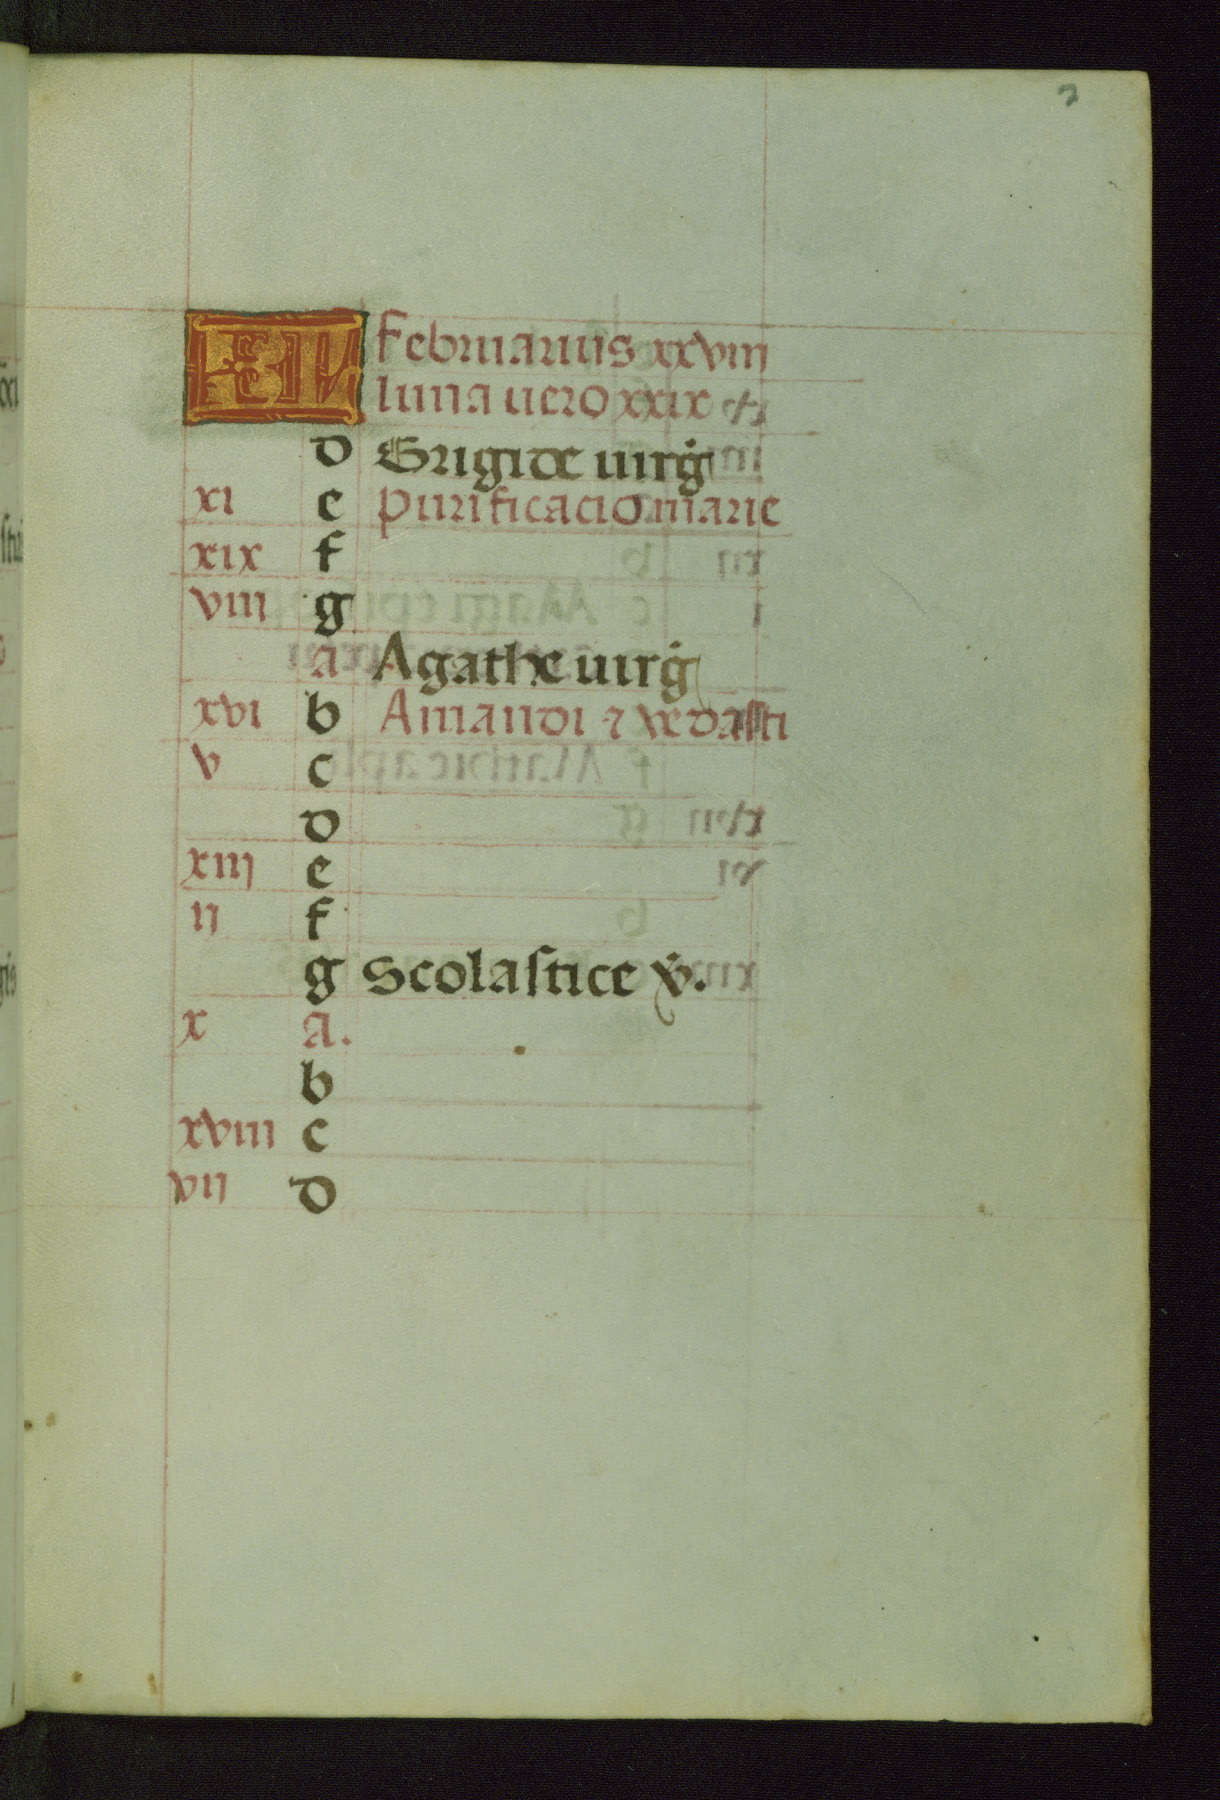 KL Februarius xxviii
luna uero xxix
d Brigide uirg
xi e Purificacio marie
xix f
viii g
A Agathe uirg
xvi b Amandi ⁊ vedasti
v c
d
xiii e
ii f
g Scolastice v̄.
x A.
b
xviii c
vii d